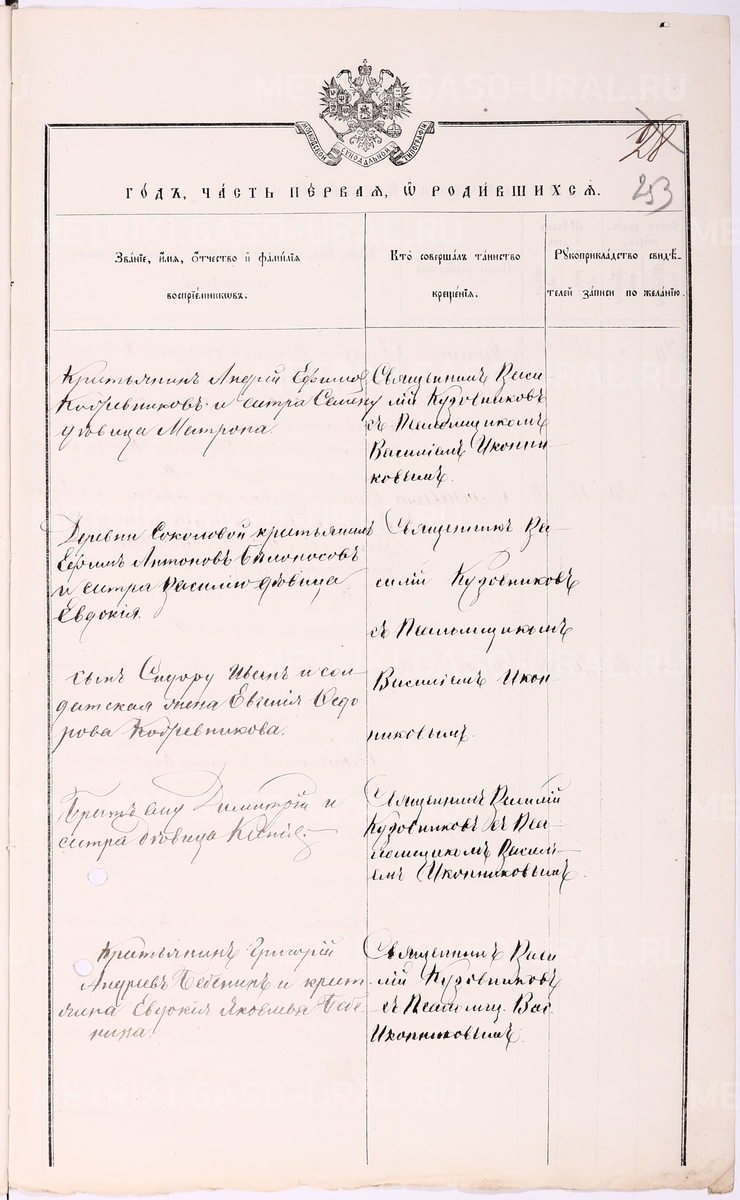 METRIKI.GASO-URAL.RU
МОСКОВСКОЙ СѴНОДАЛЬНОЙ ТИПОГРАФІИ
28
253
ГОДЪ, ЧАСТЬ ПЕРВАЯ, Ѡ РОДИВШИХСЯ.
Званіе, имя, отчество и фамилія
воспріемниковъ.
Кто совершалъ таинство
крещенія.
Рукоприкладство свидѣ-
телей записи по желанію.
Крестьянинъ Андрей Ефимов
и сестра Семену
дѣвица Матрона.
Священникъ Васи
лій Кузовниковъ
съ Псаломщикомъ
Василіемъ Иконни
ковымъ.
Деревни Соколовой крестьянинъ
Ефимъ Антоновъ Бѣлоносовъ
и сестра Василію дѣвица
Евдокія.
Священникъ Ва-
силій Кузовниковъ
съ Псаломщикомъ
Василіемъ Икон
никовымъ.
сынъ Сидору Иванъ и сол-
датская жена Евгенія Ѳедо
рова
Братъ ему Димитрій и
сестра дѣвица
Священникъ Василій
Кузовниковъ съ Пса-
ломщикомъ Васелі-
емъ Иконниковымъ.
Крестьянинъ Григорій
Андреевъ и крест.
жена Евдокія Яковлева
Священникъ Васи
лій Кузовниковъ
съ Псаломщ. Вас.
Иконниковымъ.